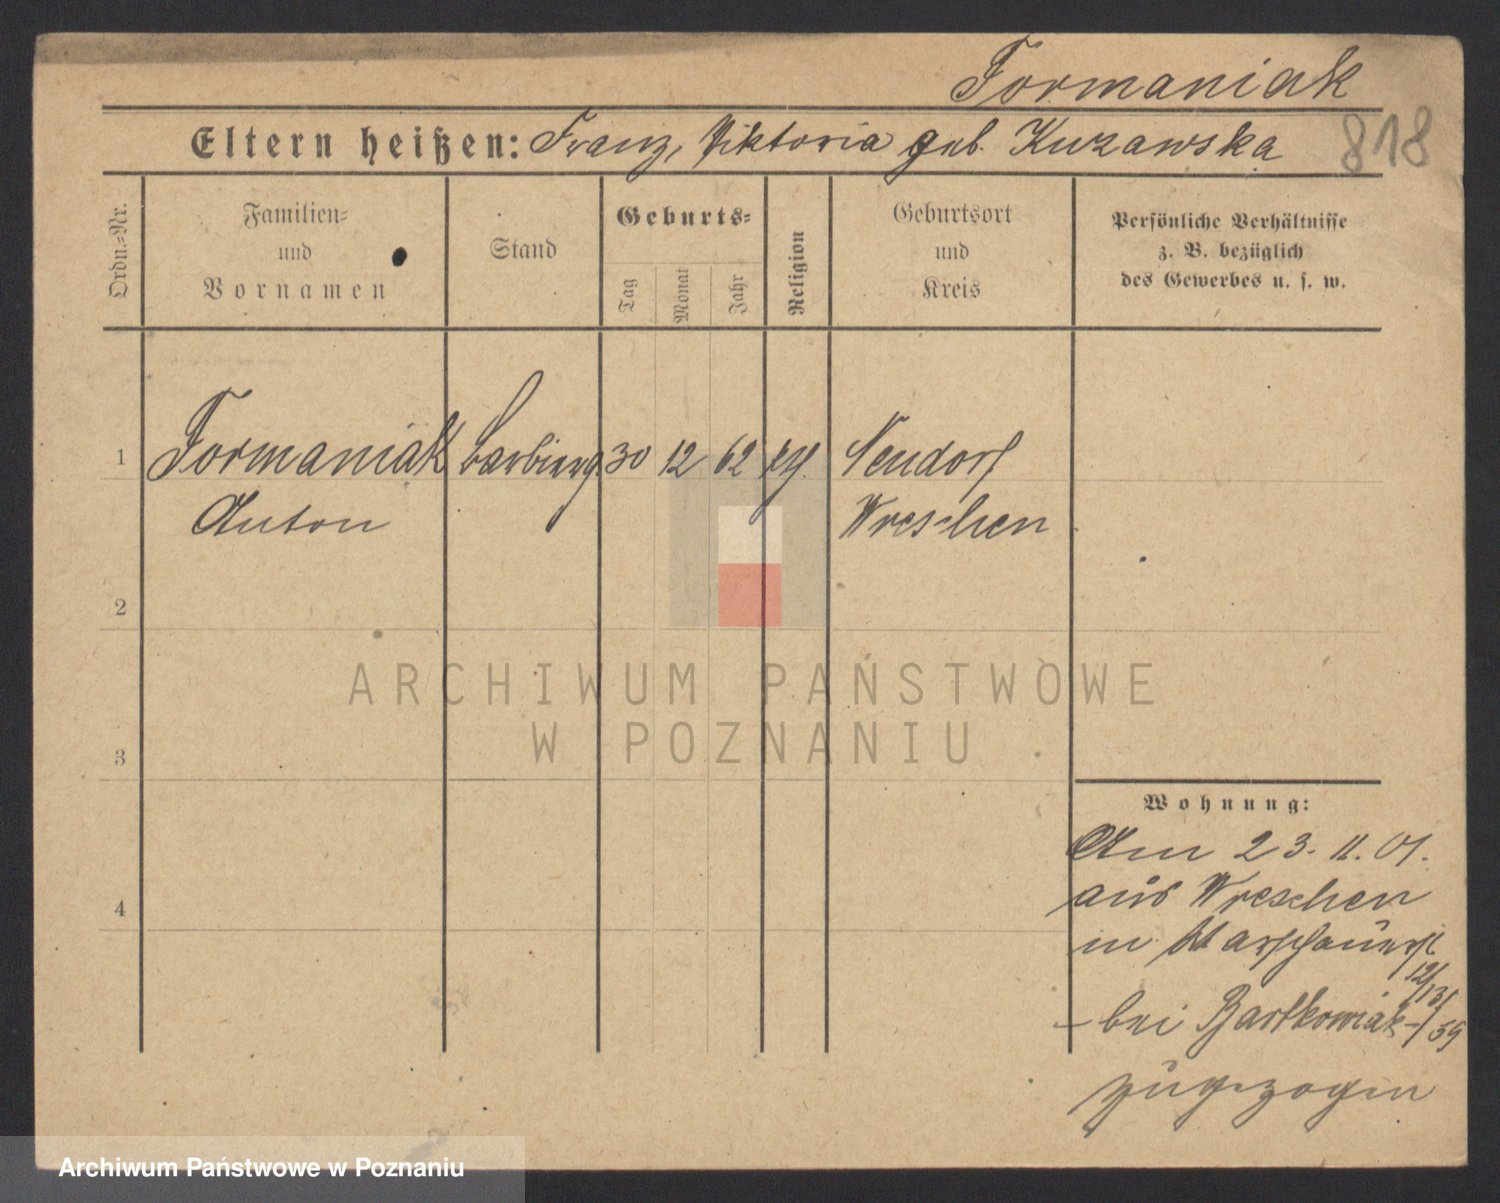 Formaniak
Eltern heißen: Franz, Viktoria geb. Kuzawska
818
Ordn.=Nr.
Familien=
und
Vornamen
Stand
Geburts=
Tag
Monat
Jahr
Religion
Geburtsort
und
Kreis
Persönliche Verhältnisse
z. B. bezüglich
des Gewerbes u. s. w.
1 Formaniak 30 12 62 Neudorf
Anton Wreschen
2
ARCHIWUM PAŃSTWOWE
W POZNANIU
3
Wohnung:
Am 23. 11. 01.
aus Wreschen
4
in
12/13/
– bei Bartkowiak –/59
zugezogen
Archiwum Państwowe w Poznaniu